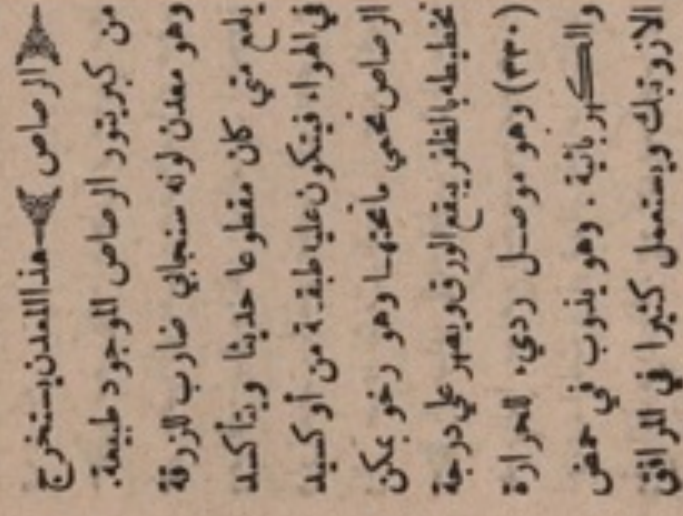 ﴿ الرصاص ﴾ هذا المعدن يستخرج
من كبريتور الرصاص الموجود طبيعة.
وهو معدن لونه سنجابي ضارب للزرقة
يلمع متي كان مقطوعا حديثا ويتأكسد
في الهواء فيتكون عليه طبقة من أوكسيد
الرصاص تحمي ماتحتها وهو رخو يمكن
تخطيطه بالظفر يبقع الورق ويصهر علي درجة
(٣٣٠) وهو موصل ردئ للحرارة
والكهربائية . وهو يذوب في حمض
الازوتيك ويستعمل كثيرا في المرافق